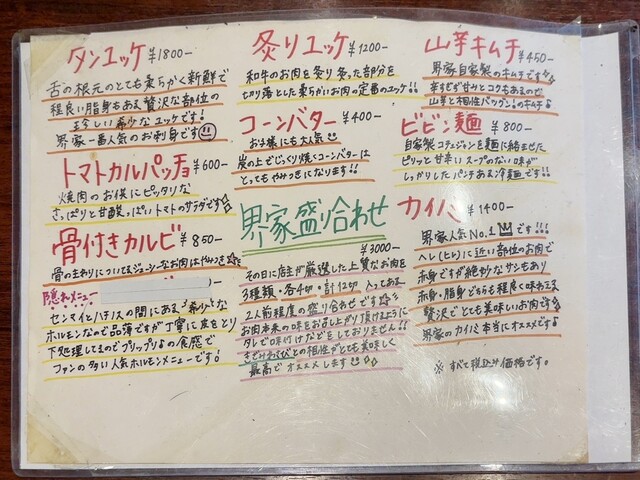 タンユッケ ¥1800-
舌の根元のとても柔らかく新鮮で
程良い脂身もある贅沢な部位の
珍しい希少なユッケです!
界家一番人気のお刺身です
トマトカルパッチョ ¥600-
焼肉のお供にピッタリな
さっぱりと甘酸っぱいトマトのサラダです
骨付きカルビ ¥850-
骨の主わりについてるジューシーなお肉はやみつき
隠れメニュー
センマイとハチノスの間にある"希少"な
ホルモンなので品薄ですが丁寧に皮をとり
下処理してますのでプリップリの食感で
ファンの多い人気ホルモンメニューです!
炙りユッケ ¥1200-
和牛のお肉を炙り 炙った部分を
切り落とした柔らかいお肉の定番のユッケ!!
コーンバター ¥400-
お子様にも大人気
炭の上でじっくり焼くコーンバターは
とってもやみつきになります!!
界家盛り合わせ
¥3000-
その日に店主が厳選した上質なお肉を
3種類・各4切・計12切 入ってある
2人前程度の盛り合わせです
お肉本来の味をお召し上がり頂けるように
タレで味付けなどをしておりません!!
きざみわさびとの相性がとても美味しく
最高でオススメします
山芋キムチ ¥450-
界家自家製のキムチです
辛すぎず甘みとコクもあるので
山芋と相性バツグンのキムチ
ビビン麺 ¥800-
自家製コチュジャンを麺に絡ませた
ピリッと甘辛いスープのない味が
しっかりしたパンチある冷麺です!!
カイノミ ¥1400-
界家人気No.1です!!!
ヘレ(ヒレ)に近い部位のお肉で
赤身ですが絶妙なサシもあり
赤身・脂身どちらも程良く味わえる
贅沢でとても美味しいお肉です
界家のカイノミ本当にオススメです
※すべて税込み価格です。